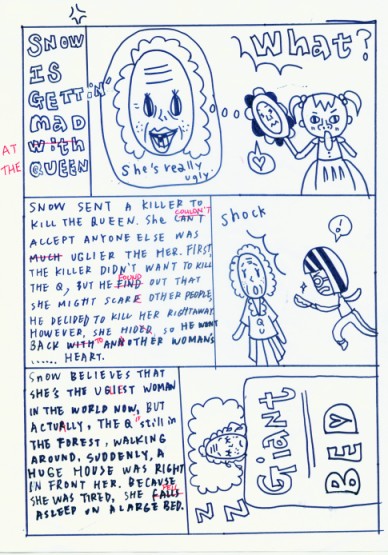 SNOW
IS
GETTIN
MAD
AT with
THE QUEEN
She's really
ugly.
What?
SNOW SENT A KILLER TO
KILL THE QUEEN. She COULDN'T CAN'T
ACCEPT ANYONE ELSE WAS
MUCH UGLIER THE HER. FIRST,
THE KILLER DIDN'T WANT TO KILL
THE Q, BUT HE FOUND FIND OUT THAT
SHE MIGHT SCARE OTHER PEOPLE,
HE DECIDED TO KILL HER RIGHTAWAY.
HOWEVER, SHE HIDED, SO HE WENT
BACK WITH TO ANOTHER WOMAN'S
...... HEART.
shock
!
SNOW BELIEVES THAT
SHE'S THE UGLIEST WOMAN
IN THE WORLD NOW, BUT
ACTUALLY, THE Q still in
THE FOREST, WALKING
AROUND, SUDDENLY, A
HUGE HOUSE WAS RIGHT
IN FRONT HER. BECAUSE
SHE WAS TIRED, SHE FELL FALLS
ASLEEP ON A LARGE BED.
Z Z
Giant
BED